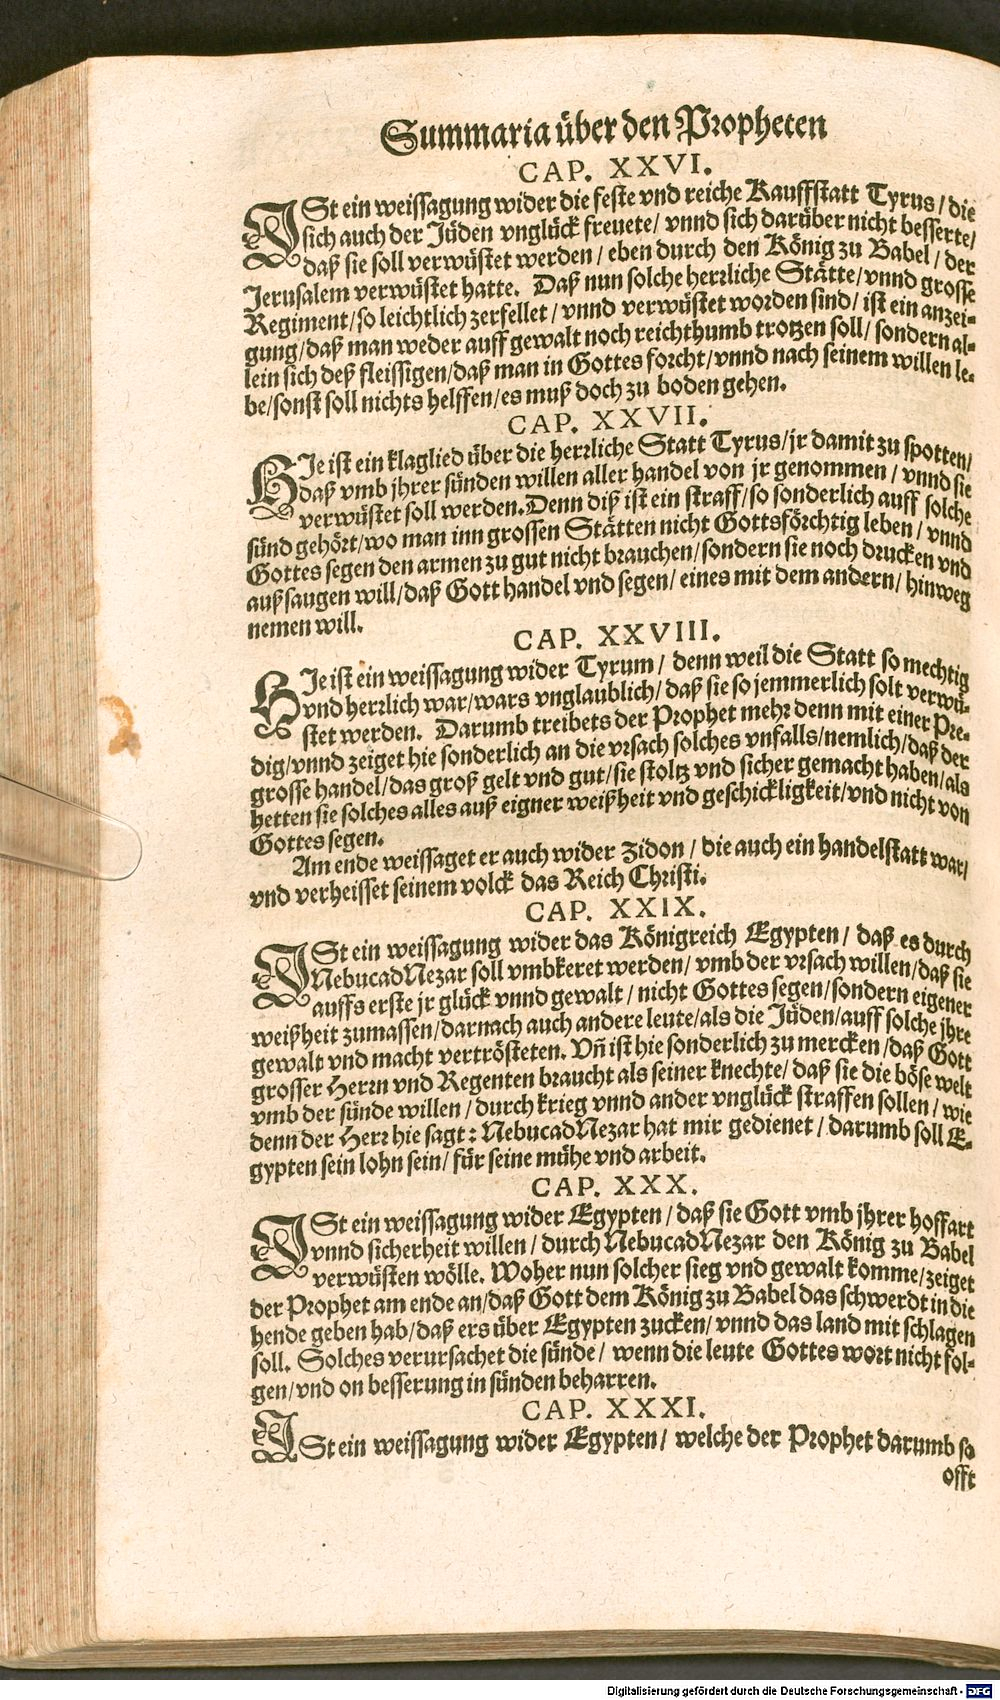 Summaria über den Propheten
CAP. XXVI.
ISt ein weissagung wider die feste vnd reiche Kauffstatt Tyrus/ die
sich auch der Jüden vnglück freuete/ vnnd sich darüber nicht besserte/
daß sie soll verwüstet werden/ eben durch den König zu Babel/ der
Jerusalem verwüstet hatte. Daß nun solche herrliche Stätte/ vnnd grosse
Regiment/ so leichtlich zerfellet/ vnnd verwüstet worden sind/ ist ein anzei-
gung/ daß man weder auff gewalt noch reichthumb trotzen soll/ sondern al-
lein sich deß fleissigen/ daß man in Gottes forcht/ vnnd nach seinem willen le-
be/ sonst soll nichts helffen/ es muß doch zu boden gehen.
CAP. XXVII.
HIe ist ein klaglied über die herrliche Statt Tyrus/ jr damit zu spotten/
daß vmb jhrer sünden willen aller handel von jr genommen/ vnnd sie
verwüstet soll werden. Denn diß ist ein straff/ so sonderlich auff solche
sünd gehört/ wo man inn grossen Stätten nicht Gottsförchtig leben/ vnnd
Gottes segen den armen zu gut nicht brauchen/ sondern sie noch drucken vnd
außsaugen will/ daß Gott handel vnd segen/ eines mit dem andern/ hinweg
nemen will.
CAP. XXVIII.
HIe ist ein weissagung wider Tyrum/ denn weil die Statt so mechtig
vnd herrlich war/ wars vnglaublich/ daß sie so jemmerlich solt verwü-
stet werden. Darumb treibets der Prophet mehr denn mit einer Pre-
dig/ vnnd zeiget hie sonderlich an die vrsach solches vnfalls/ nemlich/ daß der
grosse handel/ das groß gelt vnd gut/ sie stoltz vnd sicher gemacht haben/ als
hetten sie solches alles auß eigner weißheit vnd geschickligkeit/ vnd nicht von
Gottes segen.
Am ende weissaget er auch wider Zidon/ die auch ein handelstatt war/
vnd verheisset seinem volck das Reich Christi.
CAP. XXIX.
ISt ein weissagung wider das Königreich Egypten/ daß es durch
NebucadNezar soll vmbkeret werden/ vmb der vrsach willen/ daß sie
auffs erste jr glück vnnd gewalt/ nicht Gottes segen/ sondern eigener
weißheit zumassen/ darnach auch andere leute/ als die Jüden/ auff solche jhre
gewalt vnd macht vertrösteten. Vñ ist hie sonderlich zu mercken/ daß Gott
grosser Herrn vnd Regenten braucht als seiner knechte/ daß sie die böse welt
vmb der sünde willen/ durch krieg vnnd ander vnglück straffen sollen/ wie
denn der Herr hie sagt: NebucadNezar hat mir gedienet/ darumb soll E-
gypten sein lohn sein/ für seine mühe vnd arbeit.
CAP. XXX.
ISt ein weissagung wider Egypten/ daß sie Gott vmb jhrer hoffart
vnnd sicherheit willen/ durch NebucadNezar den König zu Babel
verwüsten wölle. Woher nun solcher sieg vnd gewalt komme/ zeiget
der Prophet am ende an/ daß Gott dem König zu Babel das schwerdt in die
hende geben hab/ daß ers über Egypten zucken/ vnnd das land mit schlagen
soll. Solches verursachet die sünde/ wenn die leute Gottes wort nicht fol-
gen/ vnd on besserung in sünden beharren.
CAP. XXXI.
ISt ein weissagung wider Egypten/ welche der Prophet darumb so
offt
Digitalisierung gefördert durch die Deutsche Forschungsgemeinschaft - DFG